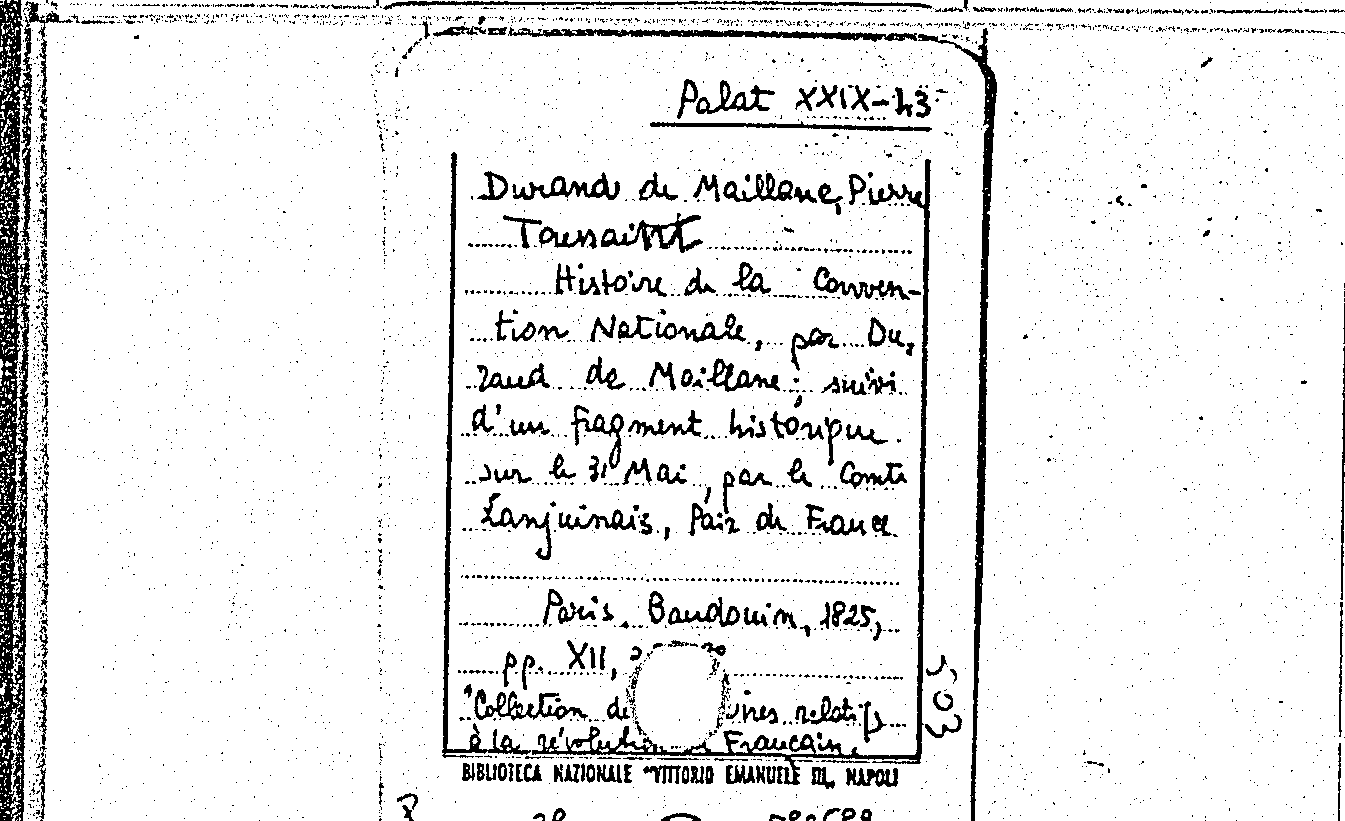 Palat XXIX-43
Durand de Maillane, Pierre
Toussaint
Histoire de la Conven-
tion Nationale, par Du,
rand de Maillane; suivi
d'un fragment historique
sur le 31 Mai, par le Comte
Lanjuinais, Pair de France
Paris, Baudouin, 1825,
pp. XII,
"Collection de relatifs
à la révolution Française.
503
BIBLIOTECA NAZIONALE "VITTORIO EMANUELE III" NAPOLI